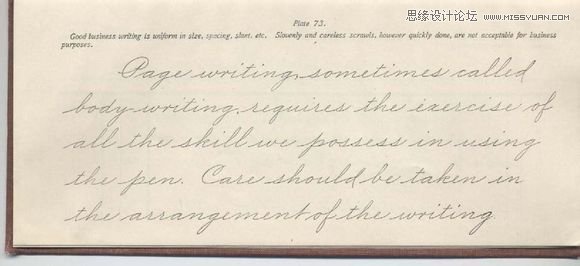 思缘设计论坛 WWW.MISSYUAN.COM
Plate 73.
Good business writing is uniform in size, spacing, slant, etc. Slovenly and careless scrawls, however quickly done, are not acceptable for business
purposes.
Page writing, sometimes called
body writing, requires the exercise of
all the skill we possess in using
the pen. Care should be taken in
the arrangement of the writing.